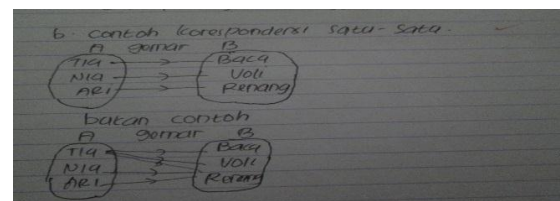 6. contoh korespondensi satu-satu.
A gemar B
Tia Baca
Nia Voli
ARi Renang
bukan contoh
A gemar B
Tia Baca
Nia Voli
ARi Renang